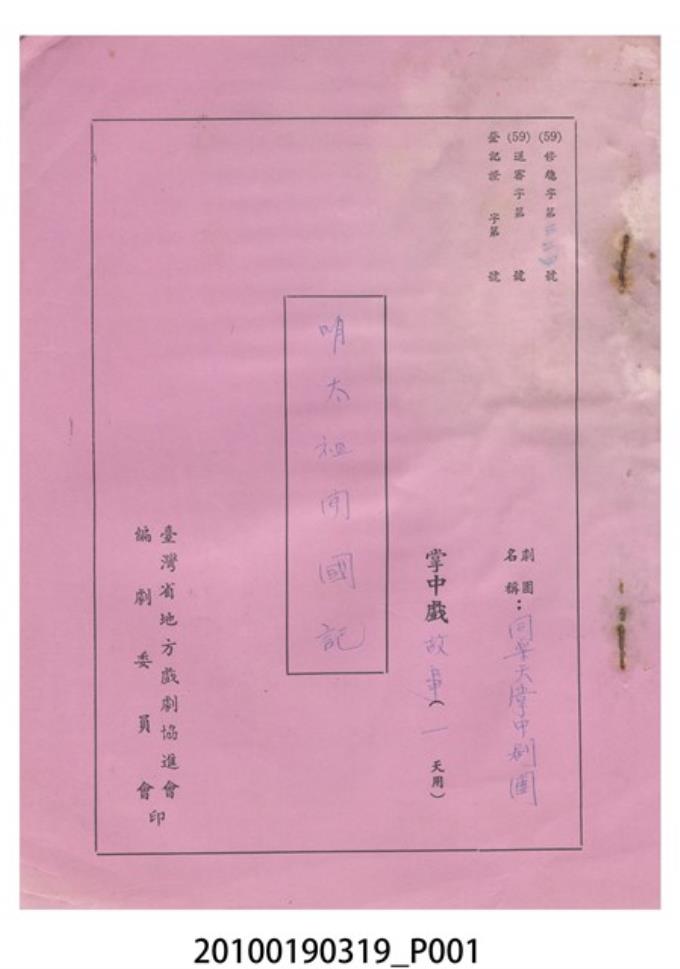 (59)修総字第三三四號
(59)送審字第 號
登記證 字第 號
劇團名稱：同樂天掌中劇團
掌中戲故事（一天用）
明太祖開國記
臺灣省地方戲劇協進會
編劇委員會印
20100190319_P001